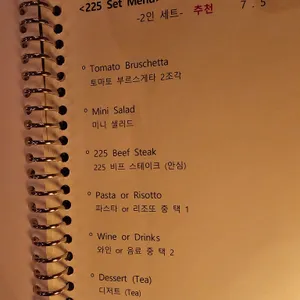 <225 Set Menu>
-2인 세트- 추천 7.5
° Tomato Bruschetta
토마토 부르스게타 2조각
° Mini Salad
미니 샐러드
° 225 Beef Steak
225 비프 스테이크 (안심)
° Pasta or Risotto
파스타 or 리조또 중 택 1
° Wine or Drinks
와인 or 음료 중 택 2
° Dessert (Tea)
디저트 (Tea)